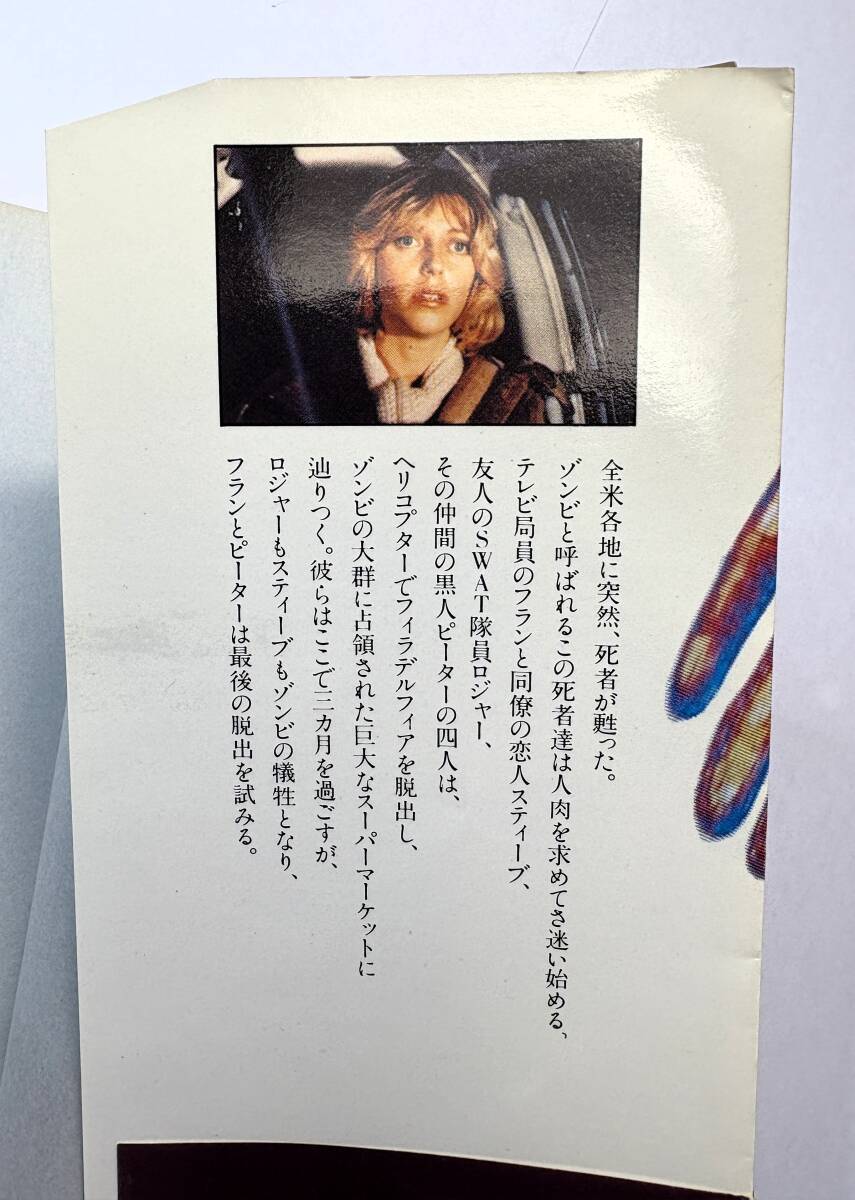 全米各地に突然、死者が甦った。
ゾンビと呼ばれるこの死者達は人肉を求めてさ迷い始める、
テレビ局員のフランと同僚の恋人スティーブ、
友人のSWAT隊員ロジャー、
その仲間の黒人ピーターの四人は、
ヘリコプターでフィラデルフィアを脱出し、
ゾンビの大群に占領された巨大なスーパーマーケットに
辿りつく。彼らはここで三カ月を過ごすが、
ロジャーもスティーブもゾンビの犠牲となり、
フランとピーターは最後の脱出を試みる。